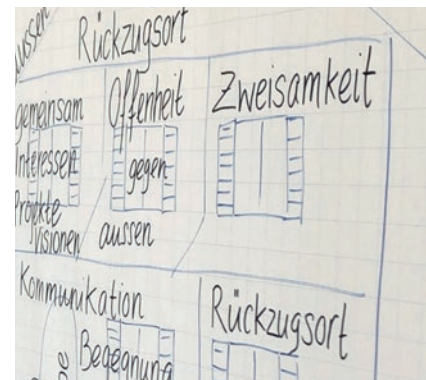 aussen
Rückzugsort
gemeinsam
Interessen
Projekte
Visionen
Offenheit
gegen
aussen
Zweisamkeit
Kommunikation
Begegnung
Rückzugsort